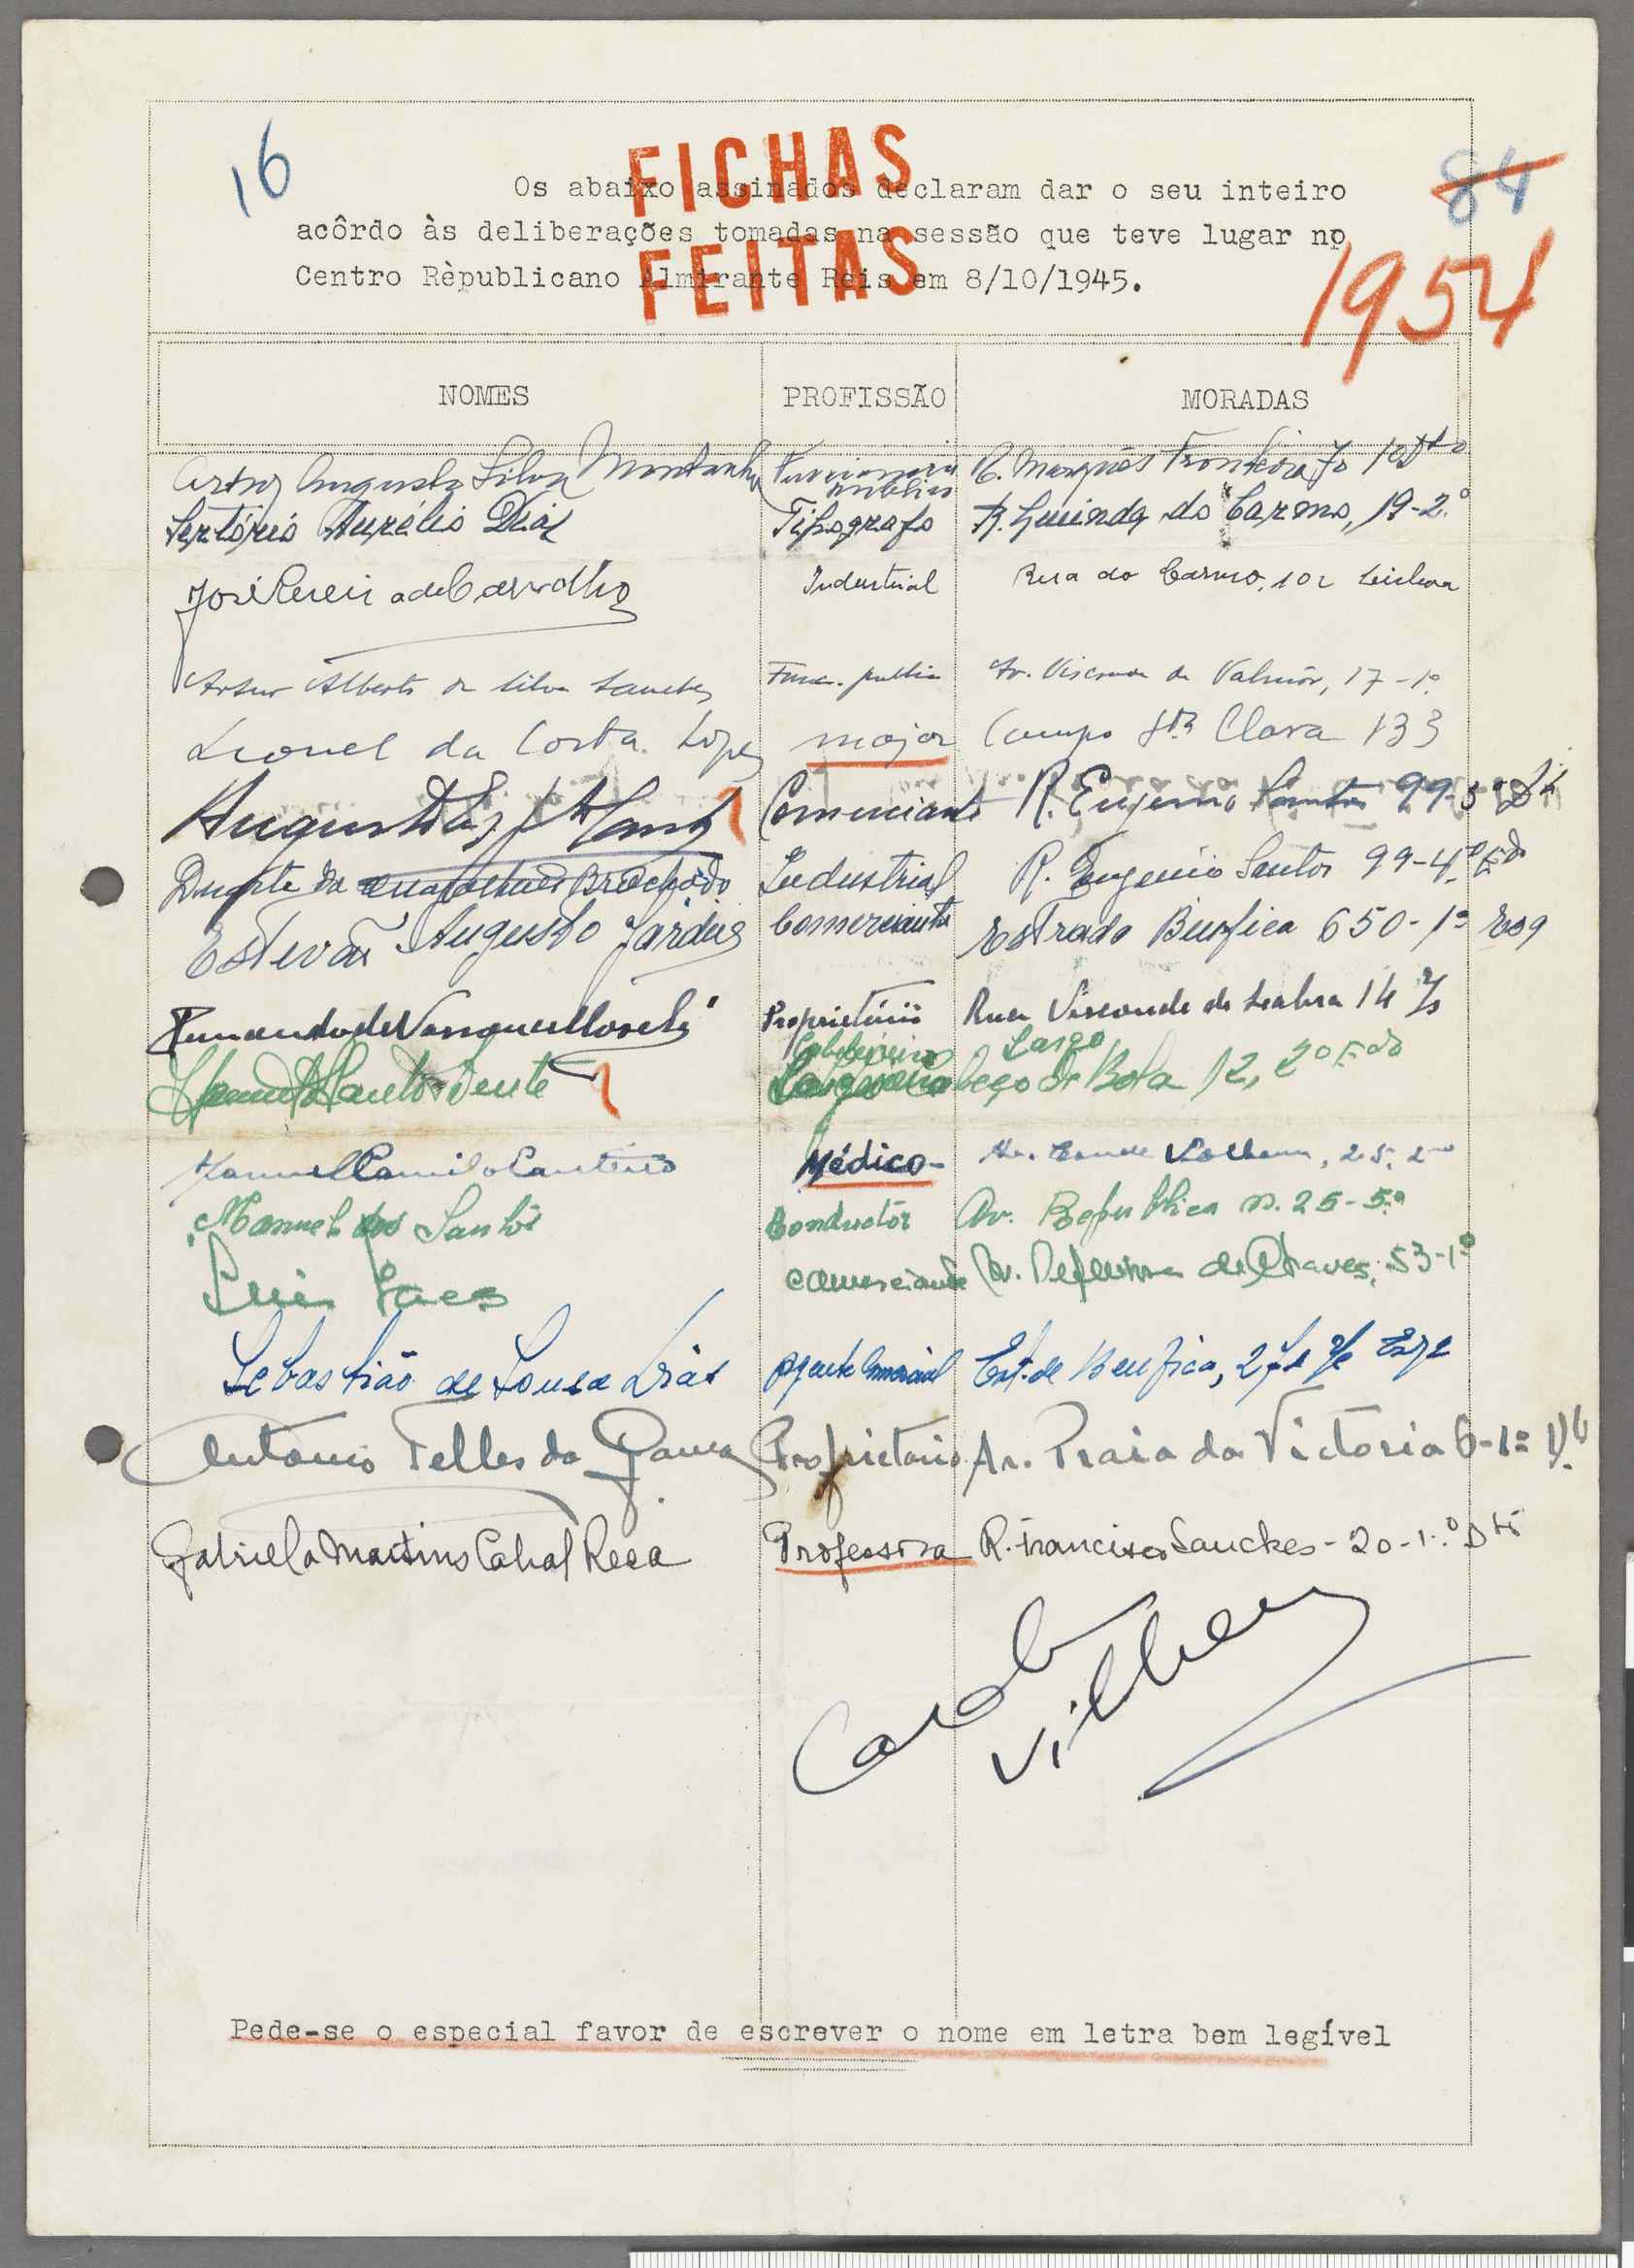 16
FICHAS
FEITAS
84
1954
Os abaixo assinados declaram dar o seu inteiro
acôrdo às deliberações tomadas na sessão que teve lugar no
Centro Rèpublicano Almirante Reis em 8/10/1945.
NOMES PROFISSÃO MORADAS
Artur Augusto Silva Montanha Funcionario publico R. Marquês Fronteira 70 1º Dto
Sertório Aurélio Dias Tipógrafo do Carmo, 19-2.º
José Pereira de Carvalho Industrial Rua do Carmo, 102 Lisboa
Artur Alberto da Silva Sanches Func. publico Av. Visconde de Valmôr, 17-1º
Leonel da Costa Lopes major Campo Sta Clara 133
Comerciante R. Eugenio Santos 99-3º Dt
Duarte da Brochado Industrial R. Eugenio Santos 99-4º Edo
Estevão Augusto Jardim Comerciante Estrada Benfica 650-1º Esq
Proprietário Rua Visconde de Seabra 14
Largo
Santos Dente 12, 2º Edo
Manuel Camilo Médico- Av. Conde Valbom, 25, 2º
Manuel dos Santos Conductor Av. Republica n. 25-5º
Luis Paes comerciante R. Defensores de Chaves, 53-1º
Sebastião de Sousa Dias Agente Comercial Est. de Benfica, Esq
Antonio Telles da Gama Proprietario Av. Praia da Victoria 6-1º
Gabriela Martins Cabral Reça Professora R. Francisco Sanches-20-1.º Dtº
Pede-se o especial favor de escrever o nome em letra bem legível